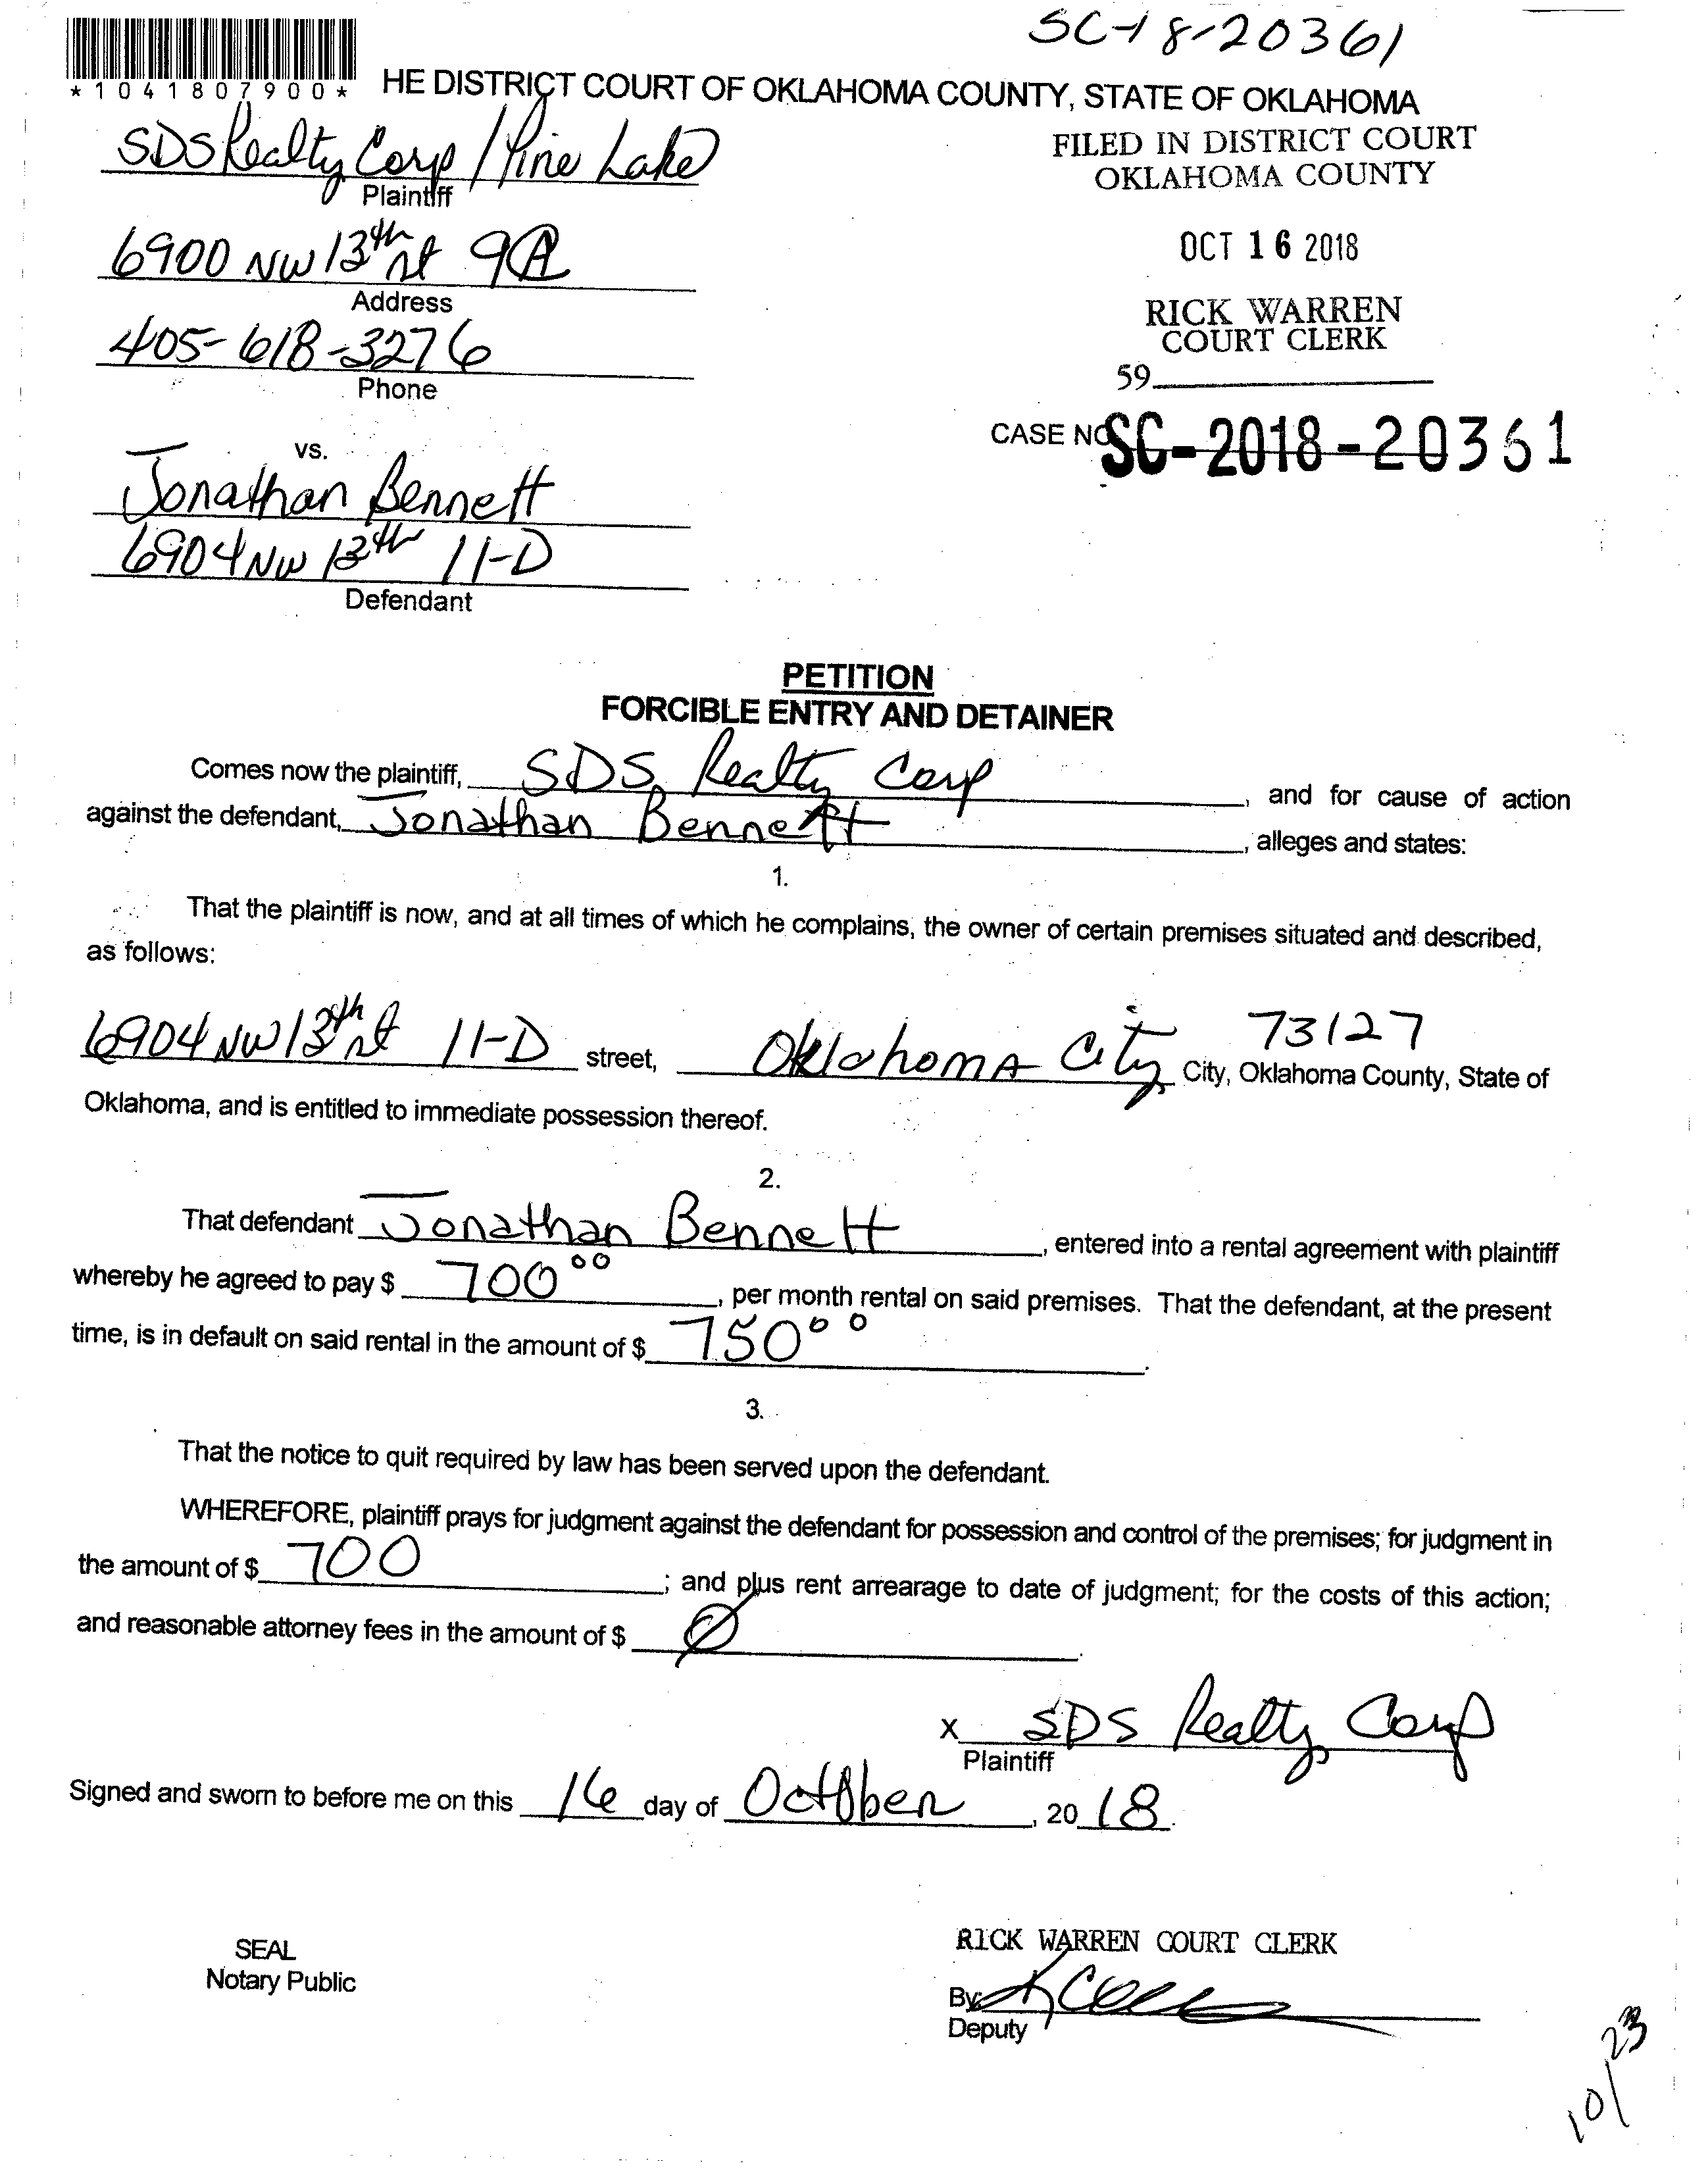 SC-18-20361
*1041807900*
HE DISTRICT COURT OF OKLAHOMA COUNTY, STATE OF OKLAHOMA
SDS Realty Corp / Pine Lake
Plaintiff
FILED IN DISTRICT COURT
OKLAHOMA COUNTY
6900 NW 13th st 9A
Address
OCT 16 2018
405-618-3276
Phone
RICK WARREN
COURT CLERK
59
CASE NO SC-2018-20361
vs.
Jonathan Bennett
6904 NW 13th 11-D
Defendant
PETITION
FORCIBLE ENTRY AND DETAINER
Comes now the plaintiff, SDS Realty Corp, and for cause of action
against the defendant, Jonathan Bennett, alleges and states:
1.
That the plaintiff is now, and at all times of which he complains, the owner of certain premises situated and described,
as follows:
6904 NW 13th st 11-D street, Oklahoma City 73127 City, Oklahoma County, State of
Oklahoma, and is entitled to immediate possession thereof.
2.
That defendant Jonathan Bennett, entered into a rental agreement with plaintiff
whereby he agreed to pay $ 700 00, per month rental on said premises. That the defendant, at the present
time, is in default on said rental in the amount of $ 750 00.
3.
That the notice to quit required by law has been served upon the defendant.
WHEREFORE, plaintiff prays for judgment against the defendant for possession and control of the premises; for judgment in
the amount of $ 700; and plus rent arrearage to date of judgment; for the costs of this action;
and reasonable attorney fees in the amount of $ 0.
X SDS Realty Corp
Plaintiff
Signed and sworn to before me on this 16 day of October, 2018.
SEAL
Notary Public
RICK WARREN COURT CLERK
By
Deputy
10/23